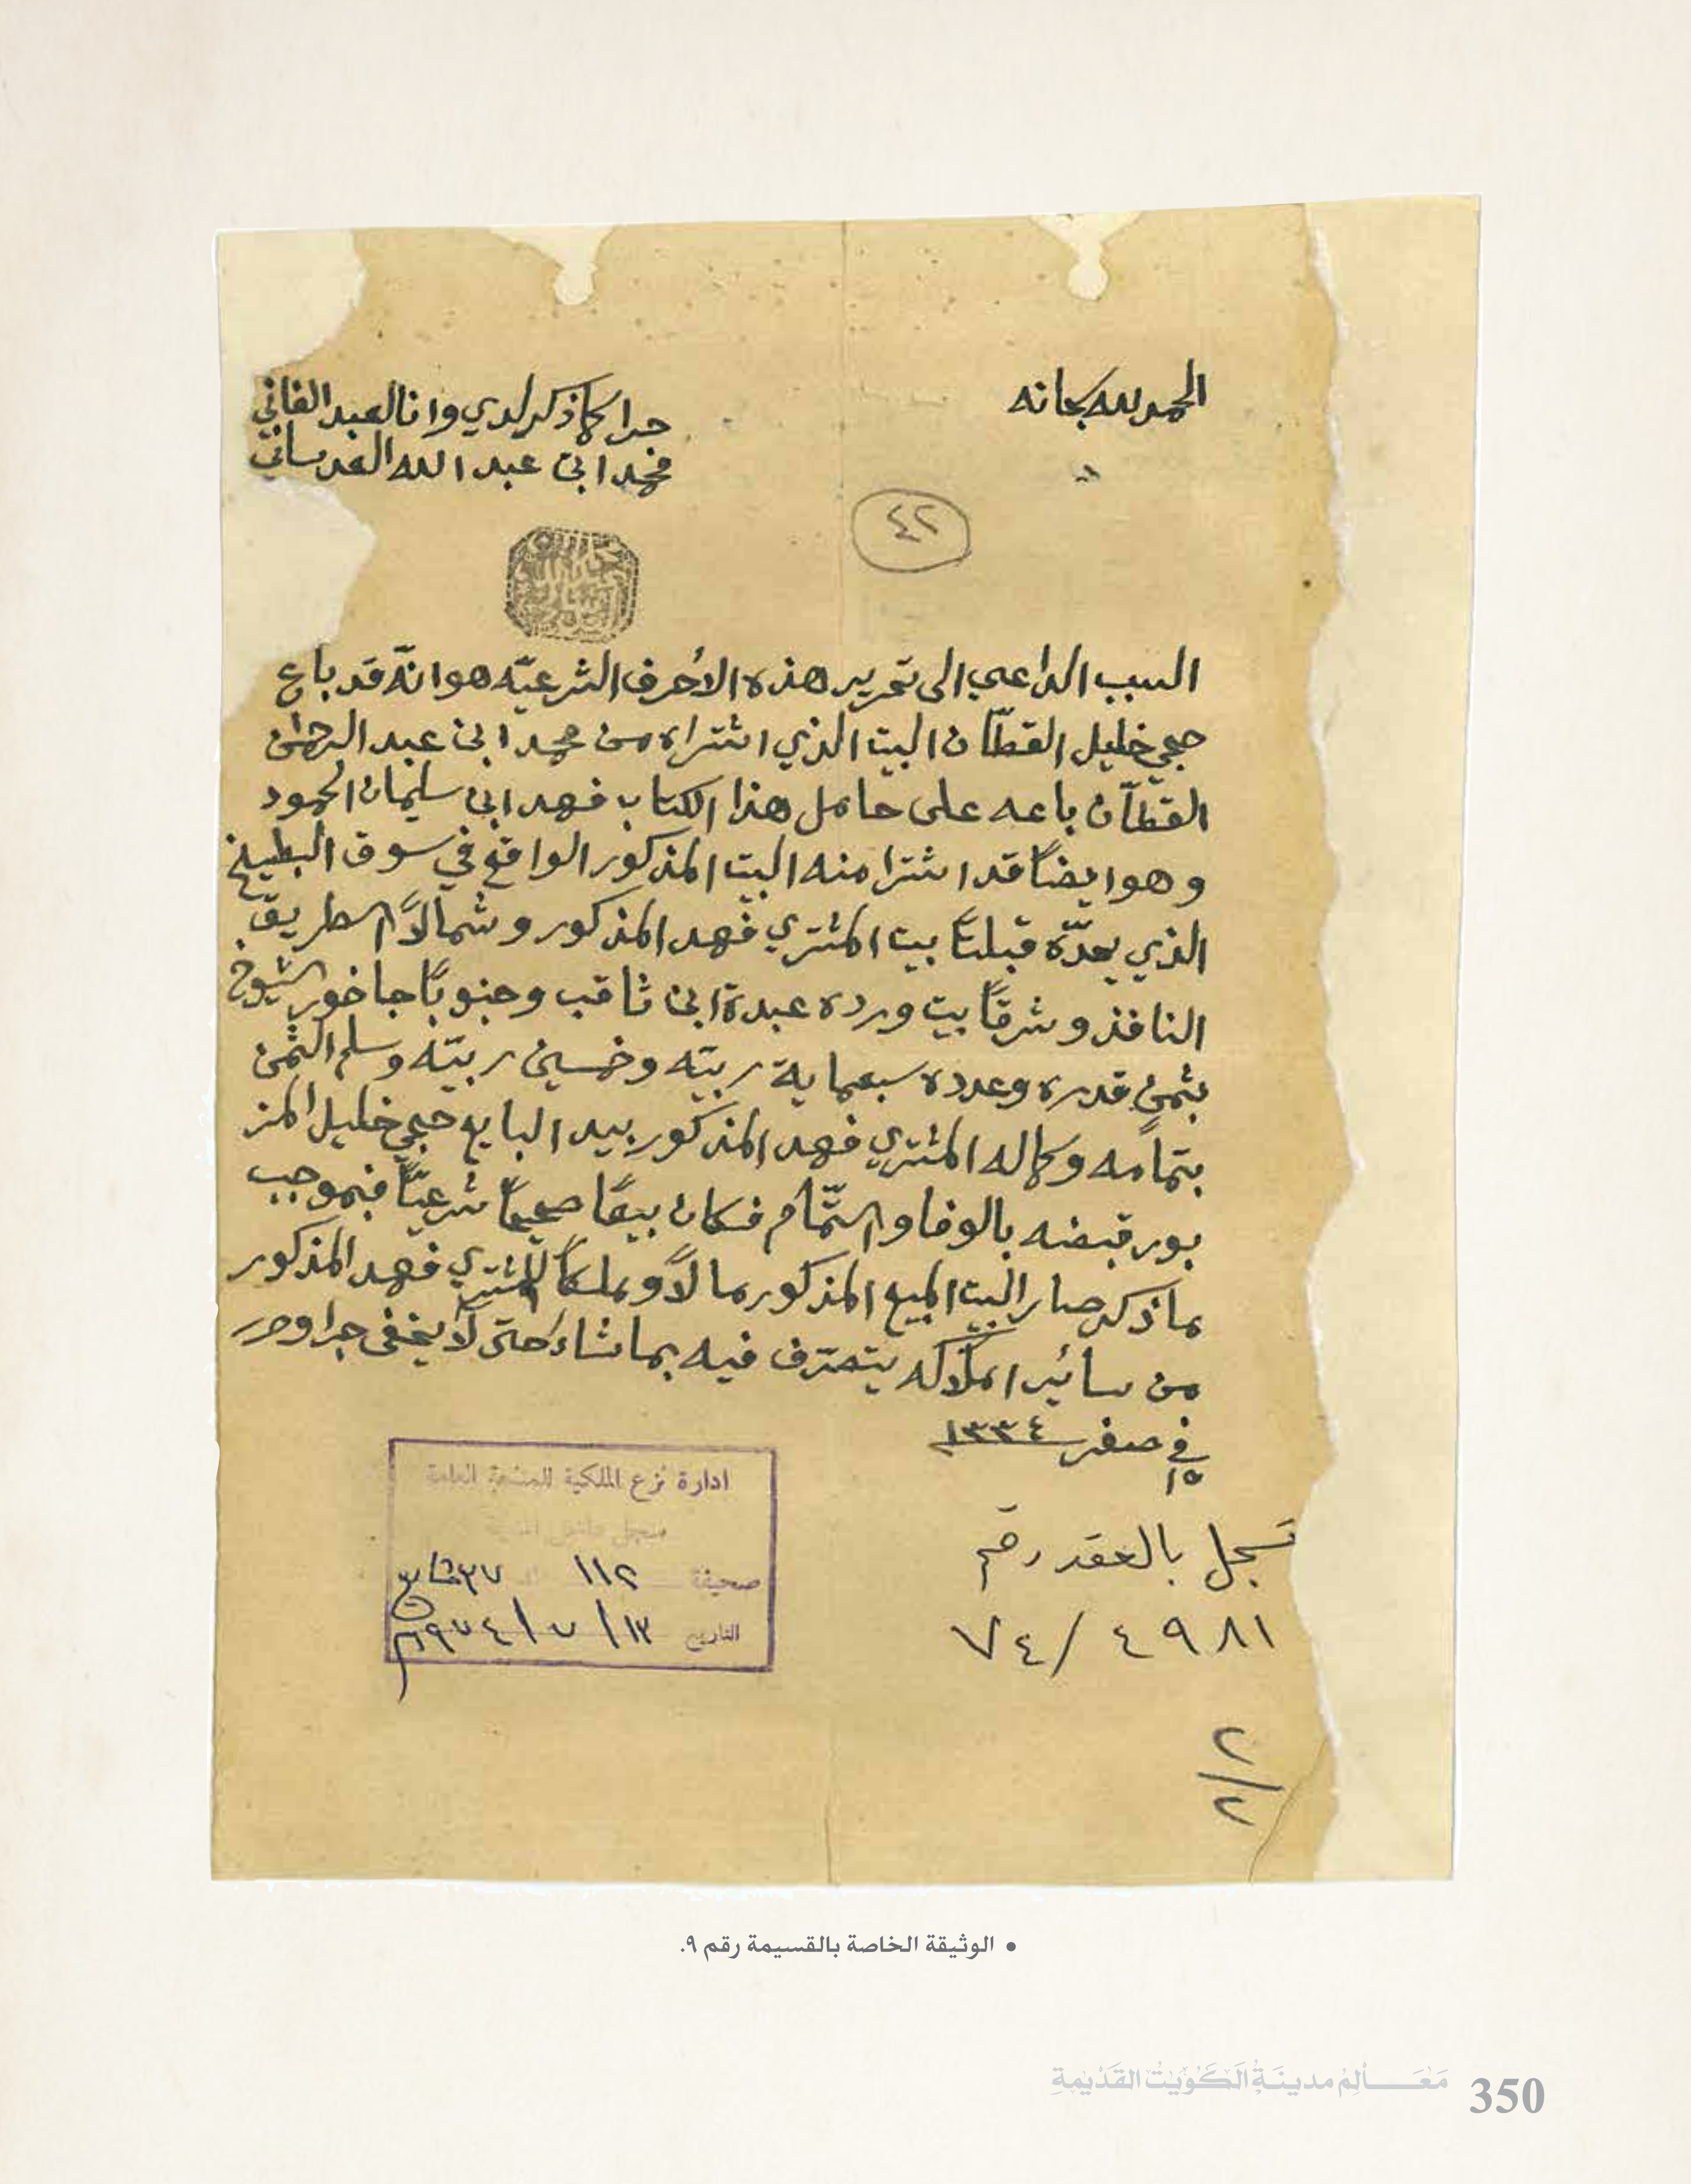 الحمد لله سبحانه
جرا كما ذكر لدي وانا العبد الفاني
محمد ابن عبد الله العدساني
٤٢
السبب الداعي الى تحرير هذه الاحرف الشرعيّه هو انّه قد باع
حجي خليل القطّان البيت الذي اشتراه من محمد ابن عبد الرحمن
القطّان باعه على حامل هذا الكتاب فهد ابن سليمان الحمود
وهو ايضاً قد اشترا منه البيت المذكور الواقع في سوق البطيخ
الذي يحدّه قبلتاً بيت المشتري فهد المذكور وشمالاً الطريق
النافذ وشرقاً بيت ورده عبدة ابن ثاقب وجنوباً جاخور الشيوخ
بثمن قدره وعدده سبعماية ربيّه وخمسين ربيّه وسلم الثمن
بتمامه وكماله المشتري فهد المذكور بيد البايع حجي خليل المذ
بور قبضه بالوفا والتّمام فكان بيعاً صحيحاً شرعيّاً فبموجب
ما ذكر صار البيت المبيع المذكور مالاً وملكاً للمشتري فهد المذكور
من سائير املاكه يتصرّف فيه بما شاء حتى لا يخفى جرا وحرر
في ١٥ صفر ١٣٣٤
ادارة نزع الملكية للمنفعة العامة
صحيفة ١١٢
التاريخ ١٣/٧/١٩٧٤
تسجل بالعقد رقم
٤٩٨١/٧٤
٢/٢
• الوثيقة الخاصة بالقسيمة رقم ٩.
مَعَـالِمُ مدينَةِ الكُوَيْتِ القَدْيمَةِ 350